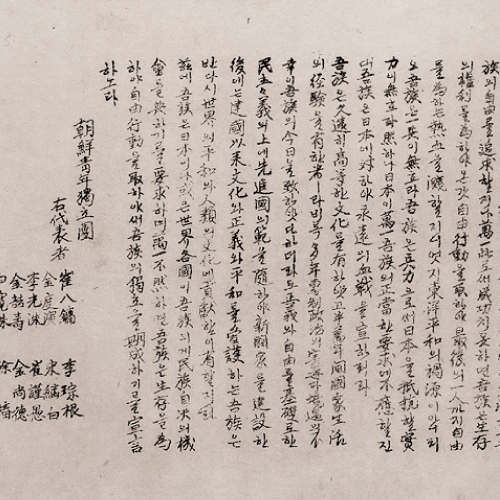 族의 自由를 追求할지나 萬一 此로써 成功치 못하면 吾族은 生存
의 權利를 爲하야 온갖 自由行動을 取하야 最後의 一人까지 自由
를 爲하는 熱血을 濺할지니 엇지 東洋平和의 禍源이 아니리
오 吾族은 一兵이 無호라 吾族은 兵力으로써 日本을 抵抗할 實
力이 無호라 然하나 日本이 萬一 吾族의 正當한 要求에 不應할진
대 吾族은 日本에 對하야 永遠의 血戰을 宣하리라
吾族은 久遠히 高等한 文化를 有하얏고 半萬年間 國家生活
의 經驗을 有한 者라 비록 多年 專制政治의 害毒과 境遇의 不
幸이 吾族의 今日을 致하얏다 하더라도 正義와 自由를 基礎로 한
民主主義의 上에 先進國의 範을 隨하야 新國家를 建設한
後에는 建國以來 文化와 正義와 平和를 愛護하는 吾族은
반다시 世界의 平和와 人類의 文化에 貢獻함이 有할지라
玆에 吾族은 日本이나 或은 世界各國이 吾族의게 民族自決의 機
會를 與하기를 要求하며 萬一 不然하면 吾族은 生存을 爲
하야 自由行動을 取하야써 吾族의 獨立을 期成하기를 宣言
하노라
朝鮮靑年獨立團
右代表者
崔八鏞 李琮根
金度演 宋繼白
李光洙 崔謹愚
金喆壽 金尚德
白寬洙 徐椿